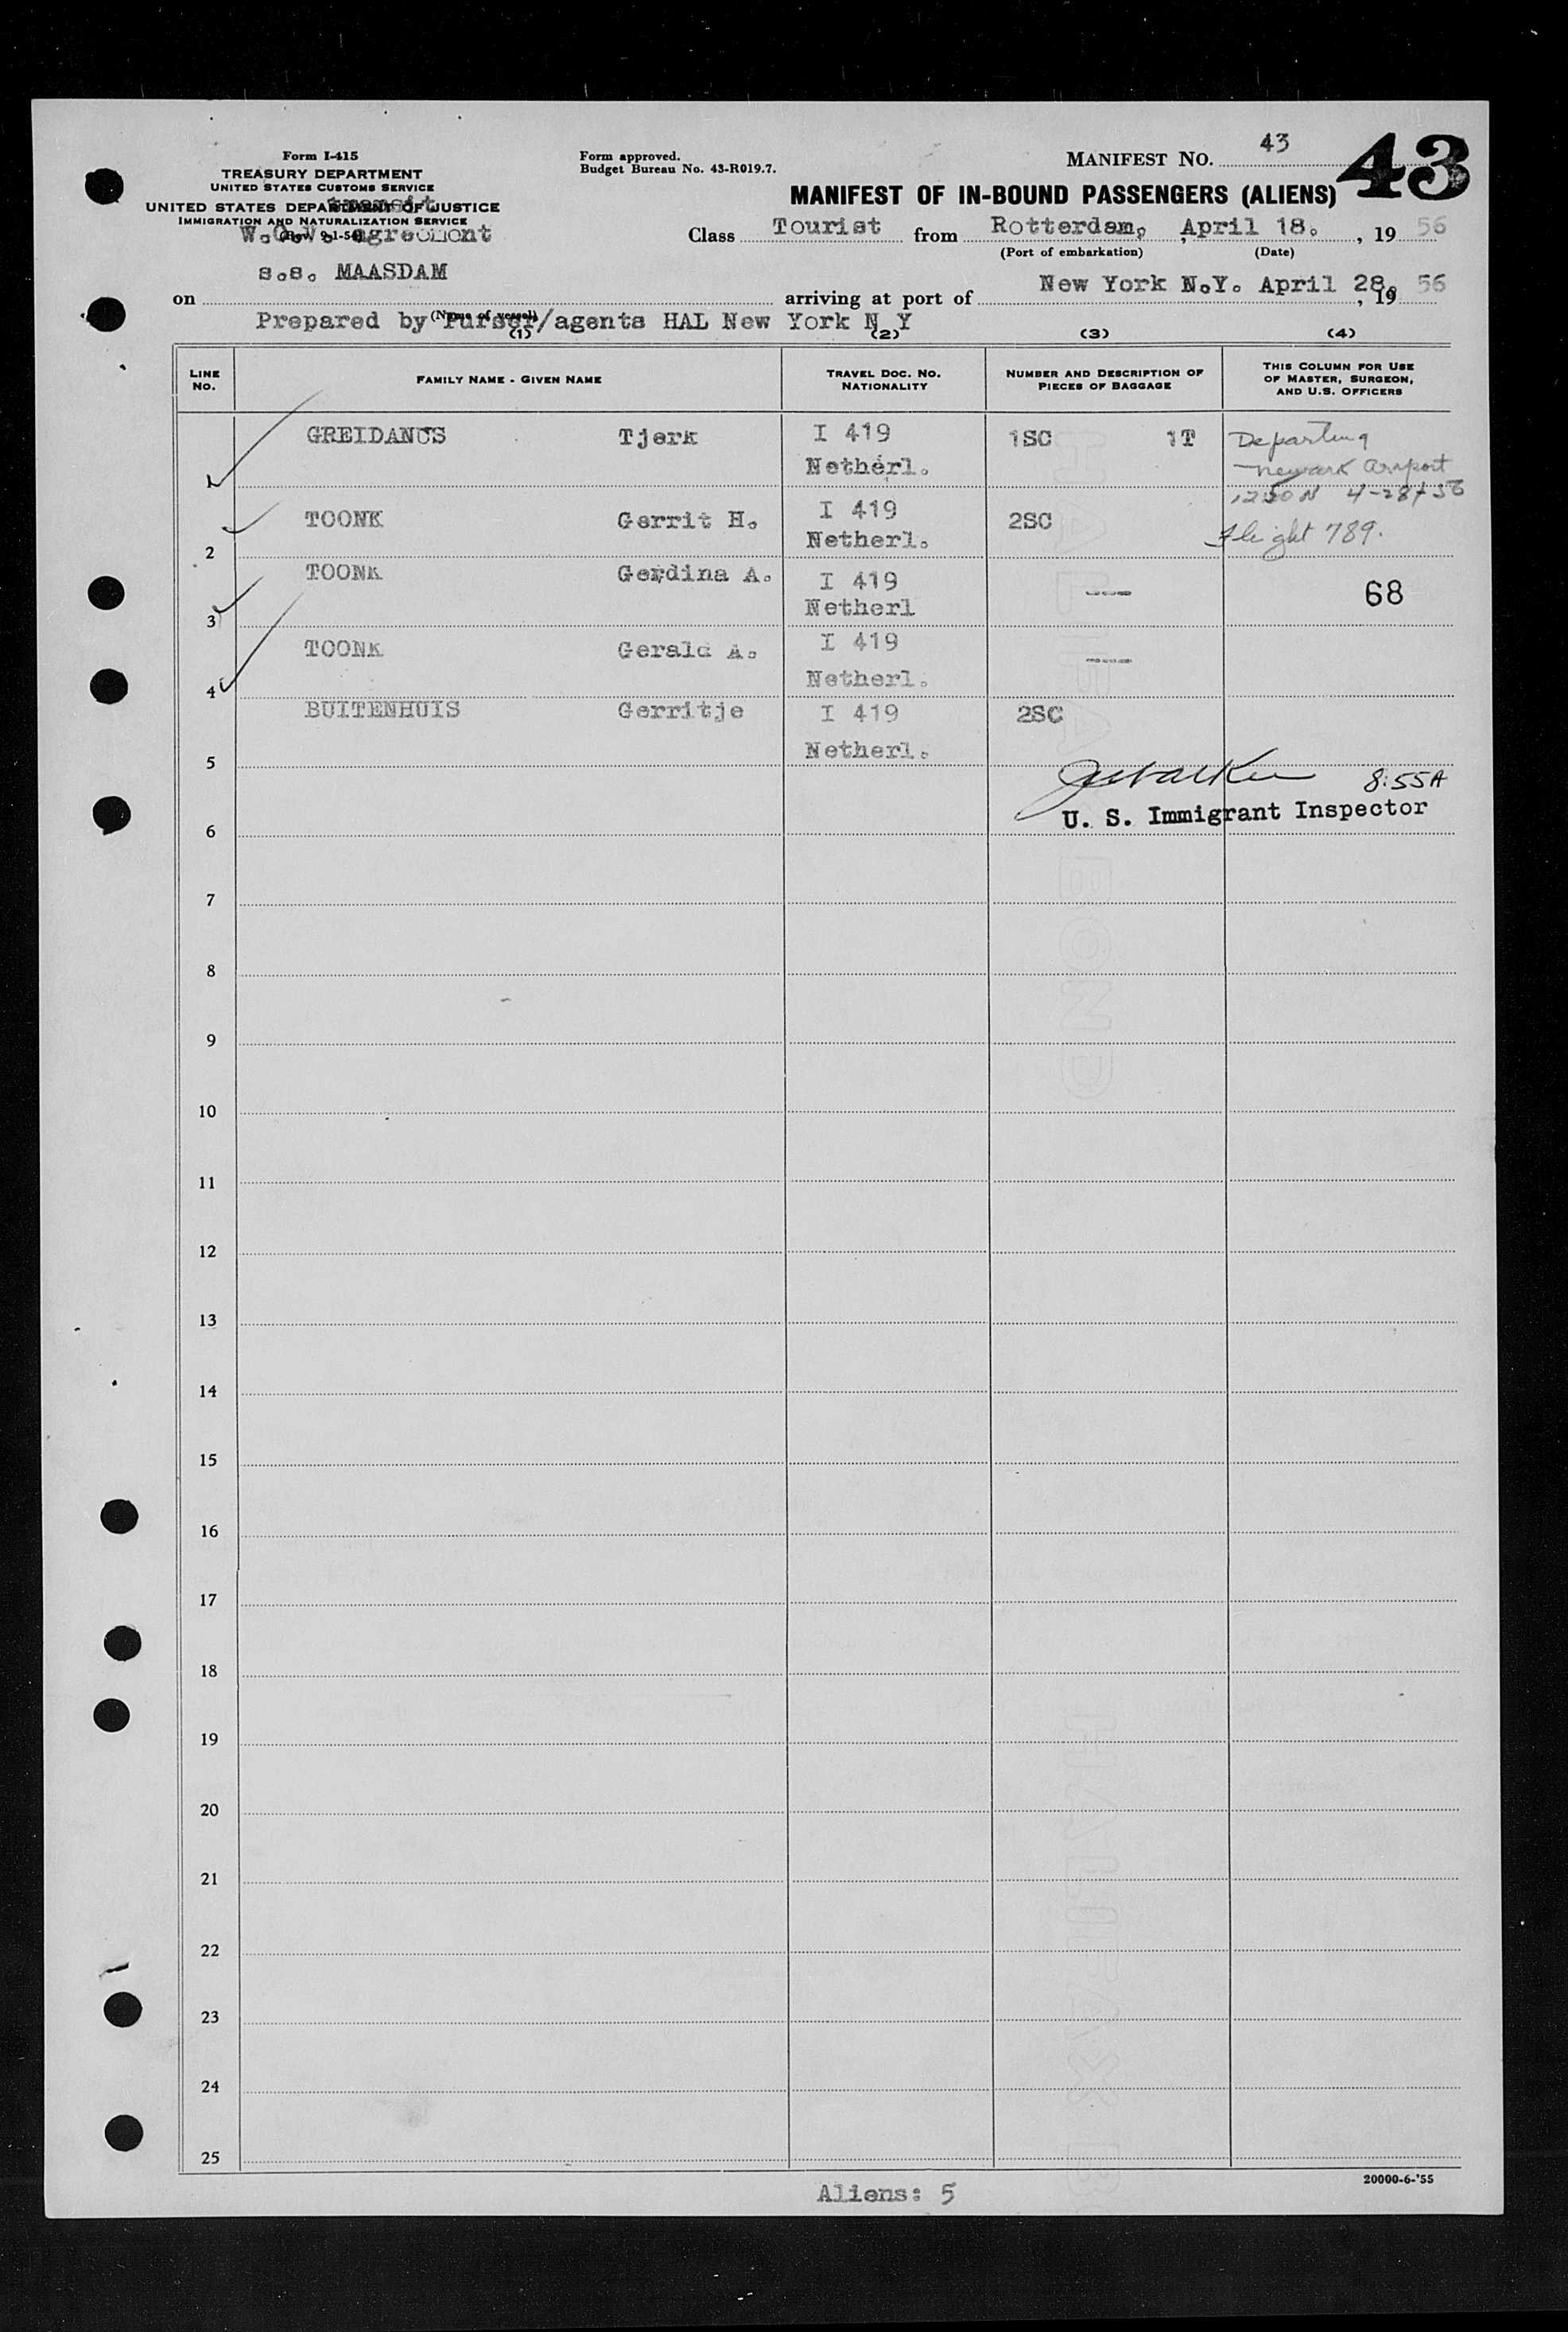 Form I-415
TREASURY DEPARTMENT
UNITED STATES CUSTOMS SERVICE
UNITED STATES DEPARTMENT OF JUSTICE
transit
IMMIGRATION AND NATURALIZATION SERVICE
(Rev. 9-1-54)
W.O.V. agreement
Form approved.
Budget Bureau No. 43-R019.7.
MANIFEST NO. 43
43
MANIFEST OF IN-BOUND PASSENGERS (ALIENS)
Class Tourist from Rotterdam, April 18. , 19 56
(Port of embarkation) (Date)
on s.s. MAASDAM arriving at port of New York N.Y. April 28. , 19 56
(Name of vessel)
Prepared by Purser/agents HAL New York N Y
(1) (2) (3) (4)
LINE NO. FAMILY NAME - GIVEN NAME TRAVEL DOC. NO. NATIONALITY NUMBER AND DESCRIPTION OF PIECES OF BAGGAGE THIS COLUMN FOR USE OF MASTER, SURGEON, AND U.S. OFFICERS
1 GREIDANUS Tjerk I 419 Netherl. 1SC 1T Departing Newark Airport
1250 N 4-28-56
2 TOONK Gerrit H. I 419 Netherl. 2SC Flight 789.
3 TOONK Gerdina A. I 419 Netherl --- 68
4 TOONK Gerald A. I 419 Netherl. ---
5 BUITENHUIS Gerritje I 419 Netherl. 2SC
8:55A
U. S. Immigrant Inspector
6
7
8
9
10
11
12
13
14
15
16
17
18
19
20
21
22
23
24
25
Aliens: 5
20000-6-'55
HALIFAX BOND
HALIFAX B